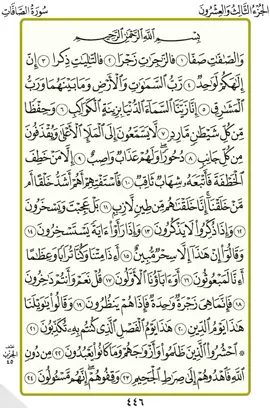 سُورَةُ الصَّافَّاتِ الجُزْءُ الثَّالِثُ وَالعِشْرُونَ
بِسْمِ اللَّهِ الرَّحْمَٰنِ الرَّحِيمِ
وَالصَّافَّاتِ صَفًّا ١ فَالزَّاجِرَاتِ زَجْرًا ٢ فَالتَّالِيَاتِ ذِكْرًا ٣ إِنَّ
إِلَٰهَكُمْ لَوَاحِدٌ ٤ رَبُّ السَّمَاوَاتِ وَالْأَرْضِ وَمَا بَيْنَهُمَا وَرَبُّ
الْمَشَارِقِ ٥ إِنَّا زَيَّنَّا السَّمَاءَ الدُّنْيَا بِزِينَةٍ الْكَوَاكِبِ ٦ وَحِفْظًا
مِّن كُلِّ شَيْطَانٍ مَّارِدٍ ٧ لَّا يَسَّمَّعُونَ إِلَى الْمَلَإِ الْأَعْلَىٰ وَيُقْذَفُونَ
مِن كُلِّ جَانِبٍ ٨ دُحُورًا وَلَهُمْ عَذَابٌ وَاصِبٌ ٩ إِلَّا مَنْ خَطِفَ
الْخَطْفَةَ فَأَتْبَعَهُ شِهَابٌ ثَاقِبٌ ١٠ فَاسْتَفْتِهِمْ أَهُمْ أَشَدُّ خَلْقًا أَم
مَّنْ خَلَقْنَا إِنَّا خَلَقْنَاهُم مِّن طِينٍ لَّازِبٍ ١١ بَلْ عَجِبْتَ وَيَسْخَرُونَ ١٢
وَإِذَا ذُكِّرُوا لَا يَذْكُرُونَ ١٣ وَإِذَا رَأَوْا آيَةً يَسْتَسْخِرُونَ ١٤
وَقَالُوا إِنْ هَٰذَا إِلَّا سِحْرٌ مُّبِينٌ ١٥ أَإِذَا مِتْنَا وَكُنَّا تُرَابًا وَعِظَامًا
أَإِنَّا لَمَبْعُوثُونَ ١٦ أَوَآبَاؤُنَا الْأَوَّلُونَ ١٧ قُلْ نَعَمْ وَأَنتُمْ دَاخِرُونَ ١٨
فَإِنَّمَا هِيَ زَجْرَةٌ وَاحِدَةٌ فَإِذَا هُمْ يَنظُرُونَ ١٩ وَقَالُوا يَا وَيْلَنَا
هَٰذَا يَوْمُ الدِّينِ ٢٠ هَٰذَا يَوْمُ الْفَصْلِ الَّذِي كُنتُم بِهِ تُكَذِّبُونَ ٢١
احْشُرُوا الَّذِينَ ظَلَمُوا وَأَزْوَاجَهُمْ وَمَا كَانُوا يَعْبُدُونَ ٢٢ مِن دُونِ
اللَّهِ فَاهْدُوهُمْ إِلَىٰ صِرَاطِ الْجَحِيمِ ٢٣ وَقِفُوهُمْ إِنَّهُم مَّسْئُولُونَ ٢٤
٤٤٦